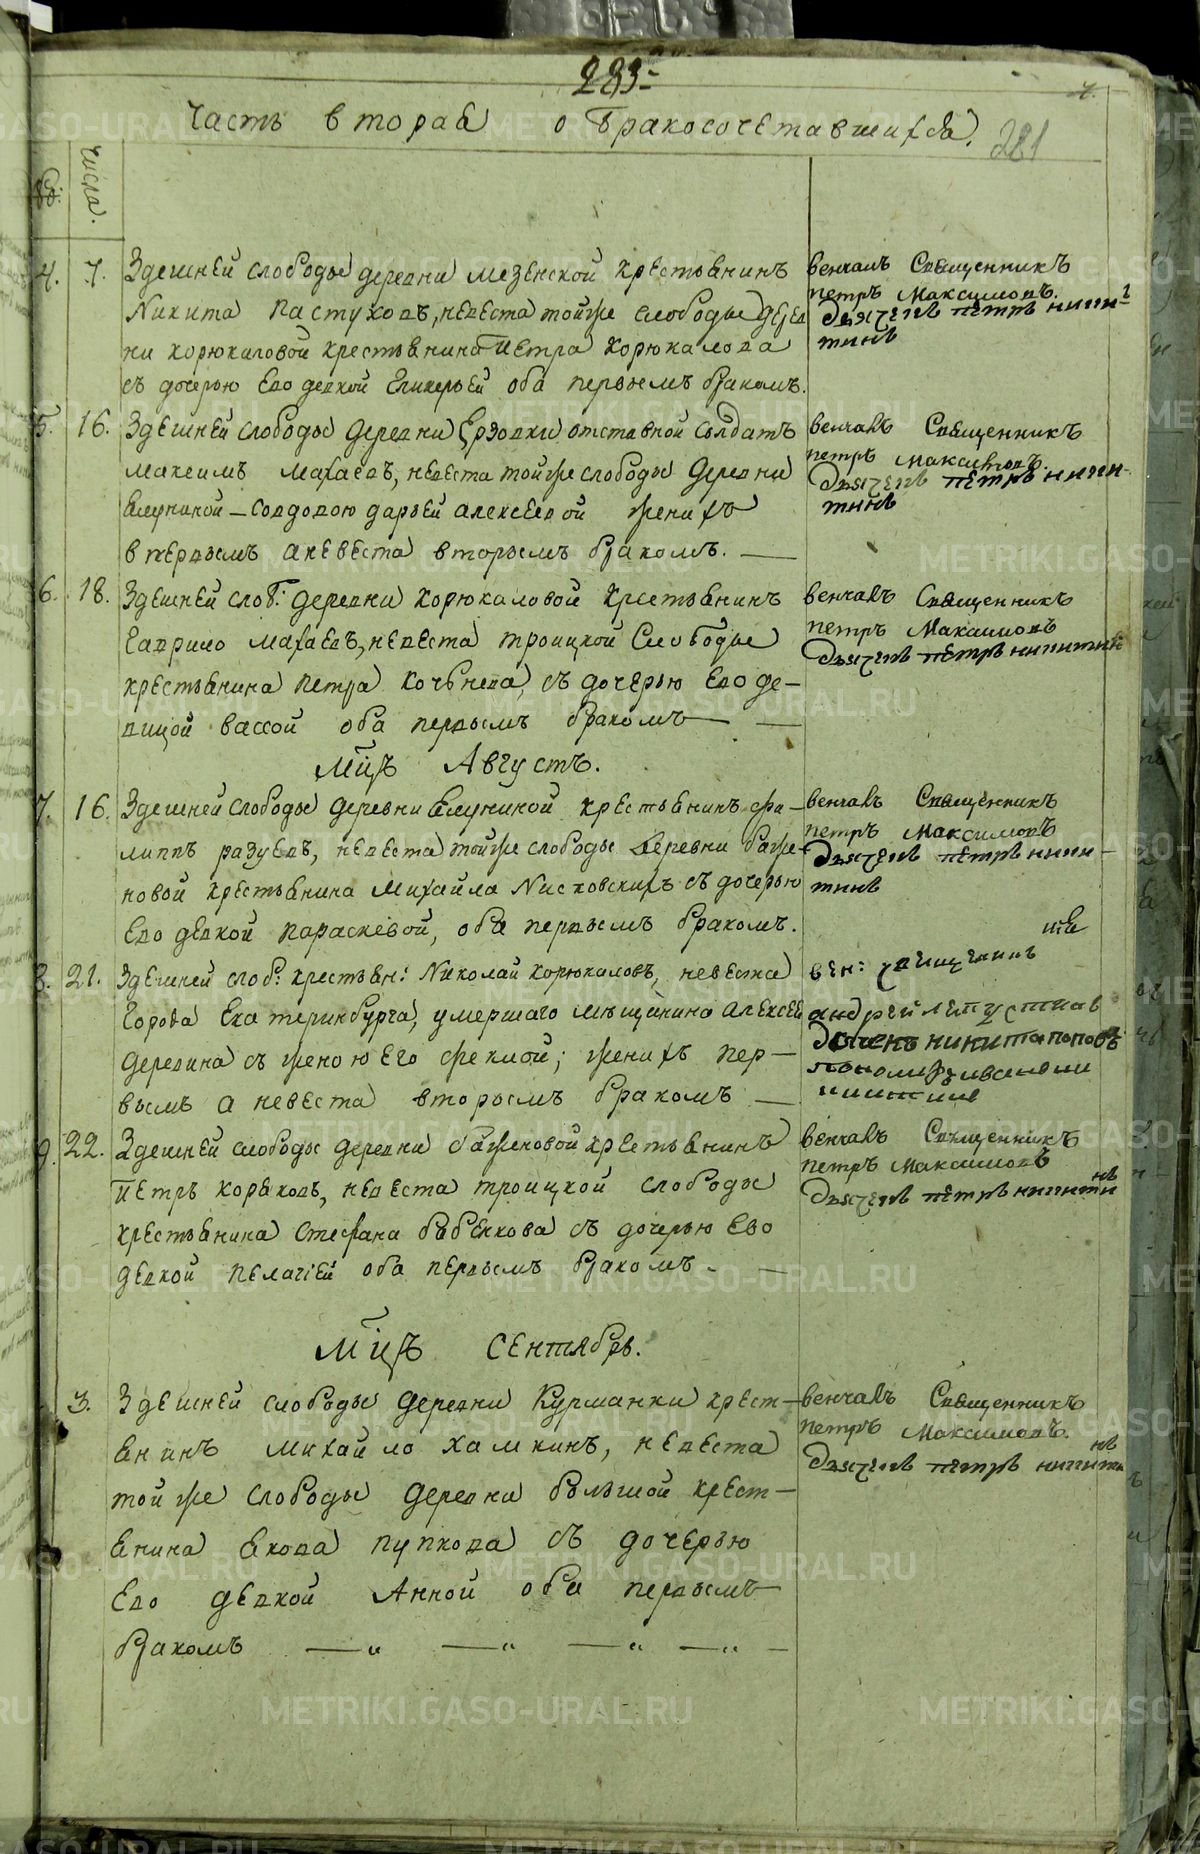 283
Часть вторая о бракосочетавшихся.
281
числа.
4. 7. Здешней слободы деревни мезенской крестьянинъ
Никита Пастуховъ, невеста тойже слободы дерев
ни корюкаловой крестьянина Петра Корюкалова
съ дочерью Ево девкой Гликерьей оба первымъ бракомъ.
венчалъ Священникъ
петръ Максимовъ.
дьячекъ петръ ники
тинъ
5. 16. Здешней слободы деревни отставной солдатъ
максимъ махаевъ, невеста тойже слободы деревни
вдовою дарьей алексеевой женихъ
в первымъ а невеста вторымъ бракомъ.
венчалъ Священникъ
петръ Максимовъ.
дьячекъ петръ ники
тинъ
6. 18. Здешней слоб: деревни корюкаловой крестьянинъ
Гаврило махаевъ, невеста троицкой Слободы
крестьянина петра кочнева, съ дочерью Ево де-
вицой вассой оба первымъ бракомъ
венчалъ Священникъ
петръ Максимовъ
дьячекъ петръ никитинъ
Мцъ Августъ.
7. 16. Здешней слободы деревни Ялуниной крестьянинъ фи-
липъ разуевъ, невеста тойже слободы деревни баже-
новой крестьянина Михайла Нисковскихъ съ дочерью
Ево девкой параскевой, оба первымъ бракомъ.
венчалъ Священникъ
петръ Максимовъ
дьячекъ петръ ники-
тинъ
8. 21. Здешней слоб: крестьян: Николай корюкаловъ, невеста
Города Екатеринбурга, умершаго мещанина алексея
деревина съ женою Его феклой; женихъ пер-
вымъ а невеста вторымъ бракомъ
вен: священникъ
андрей
никита поповъ
9. 22. Здешней слободы деревни баженовой крестьянинъ
Петръ коряковъ, невеста троицкой слободы
крестьянина Стефана бабенкова съ дочерью Ево
девкой пелагией оба первымъ бракомъ
венчалъ Священникъ
петръ Максимовъ
дьячекъ петръ никитинъ
Мцъ Сентябрь.
3. Здешней слободы деревни Курманки крест-
янинъ михайло хамкинъ, невеста
той же слободы деревни большой крест-
янина якова пупкова съ дочерью
Ево девкой Анной оба первымъ
бракомъ
венчалъ Священникъ
петръ Максимовъ.
дьячекъ петръ никитинъ
METRIKI.GASO-URAL.RU